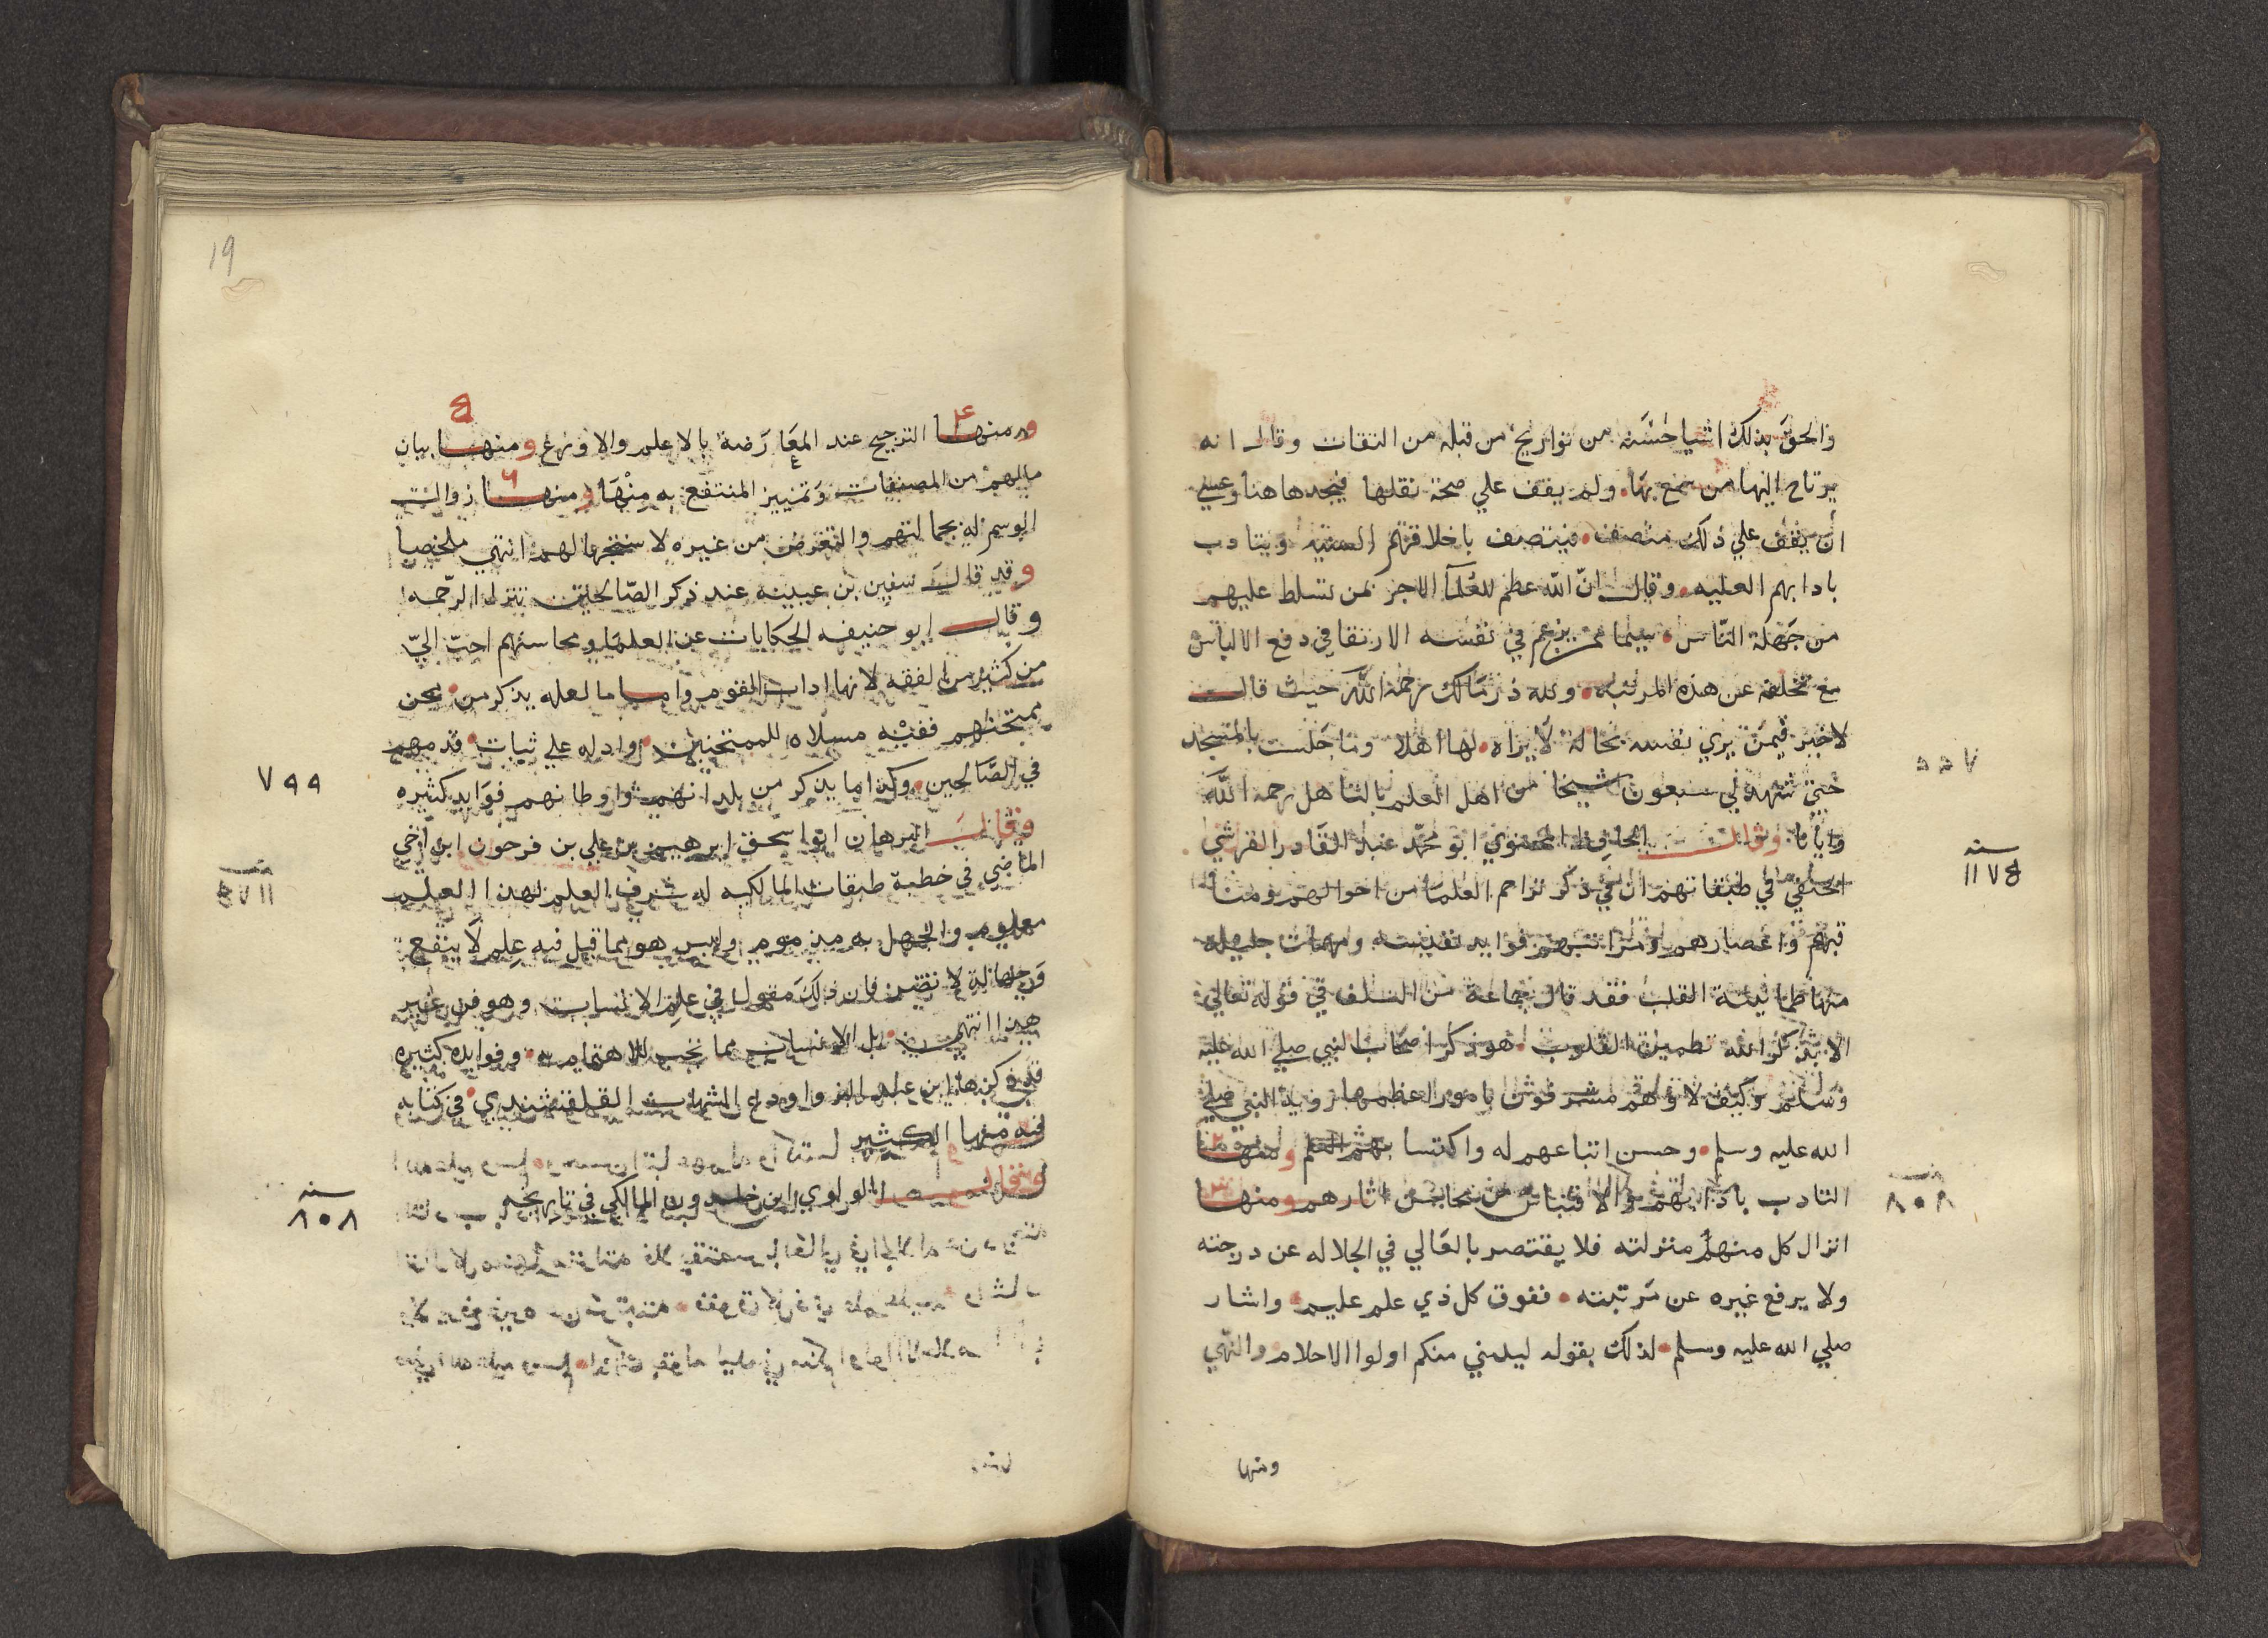 والحق بذلك اشيا حسنه من تواريخ من قبله من الثقات وقال انه
يرتاح اليها من سمع بها ولم يقف علي صحة نقلها فيجدها هنا وعسي
ان يقف علي ذلك منصف فيتصف باخلاقهم السنيه ويتادب
بادابهم العليه وقال انّ اللّه عظم للعُلمآ الاجر بمن تسلط عليهم
من جَهَلة النّاس بينما يزعم في نفسه الارتقا في دفع الالباس
مع تخلفه عن هذه المرتبه ولله در مَالك رحمه اللّه حيث قالـــ
لا خير فيمَن يري نفسه بحالة لا يراه لها اهلا وما جَلست بالمسجد
حَتي شهد لي سبعون شيخا من اهل العلم بالتاهل رحمه اللّه
وايانا وقالـــ الحافظ المحيوي ابو محمّد عبد القَادر القرشي
سنه
١١٧٥
الحنفي في طبقاتهم ان في ذكر تراجم العلمَا من احوالهم ومنا
قبهم واعصارهم ومراتبهم فوايد نفيسه ومهمات جليله
منها طمانينة القلب فقد قال جماعة من السلف في قوله تعالي
الا بذكر الله تطمين القلوب هو ذكر اصحَاب النبي صلي الله عليه
وَسلم وكيف لا وهم مشرفون بامور اعظمها رويه النبي صلي
الله عليه وسلم وحسن اتباعهم له واكتسا بهم العلم ومنهـــا
التادب بادابهم والاقتباس من محاسن اثارهم ومنهـــا
انزال كل منهم منزلته فلا يقتصر بالعَالي في الجلاله عن درجته
ولا يرفع غيره عن مَرتبته ففوق كل ذي علم عليم واشار
صلي الله عليه وسلم لذلك بقوله ليلني منكم اولوا الاحلام والنّهي
ومنها
19
٤ ٥
ومنهـــا الترجيح عند المعَارَضة بالاعلم والاورع ومنهـــا بيان
٦
مالهم من المصنفات وَتمييز المنتفع به مِنْهَا ومنهـــا زوالــ
الوسم له بجهالتهم والتعرض من غيره لاستجهالهم انتهي ملخصا
وقد قالــَ سفين بن عيينه عند ذكر الصّالحين تتنزل الرّحمه
وقالـــ ابو حنيفه الحكايات عن العلمَا ومحاسنهم احبّ اليّ
من كثير من الفقه لانها اداب القوم وامــا ما لعله يذكر من محن
ممتحنهم ففيه مسلاه للممتحنين وادله علي ثبات قدمهم
٧٩٩
في الصّالحين وكذا ما يذكر من بلدانهم واوطانهم فوَايد كثيره
وقالـــَ البرهان ابو اسحق ابرهيم بن علي بن فرحون ابن اخي
الماضي في خطبة طبقات المالكيه له شرف العلم لهذا العلم
معلوم والجهل به مذموم وليس هو مما قيل فيه عِلم لَا ينفع
وَجهالة لا تضر فان ذلكَ مقول في علم الانساب وهو فن غير
هذا انتهي بل الانساب مما يجب الاهتمام به وفوايده كثيره
قد ذكرها ابن عبد البر واودع الشهاب القلقشندي في كتابه
فيه منها الكثير
سنه
٨٠٨
وقال الولوي ابن خلدون المالكي في تاريخه